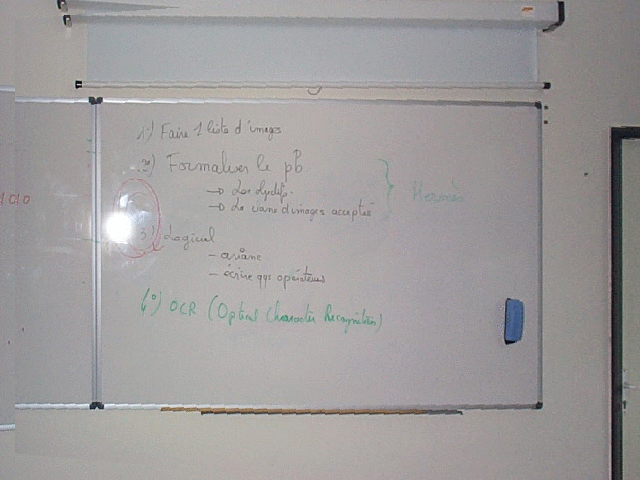 1°) Faire 1 liste d'images
2°) Formaliser le pb
→ Les objectifs.
→ La classe d'images acceptés
Hermès
3°) Logiciel
- ariane
- écrire qqs opérateurs
4°) OCR (Optical Character Recognition)